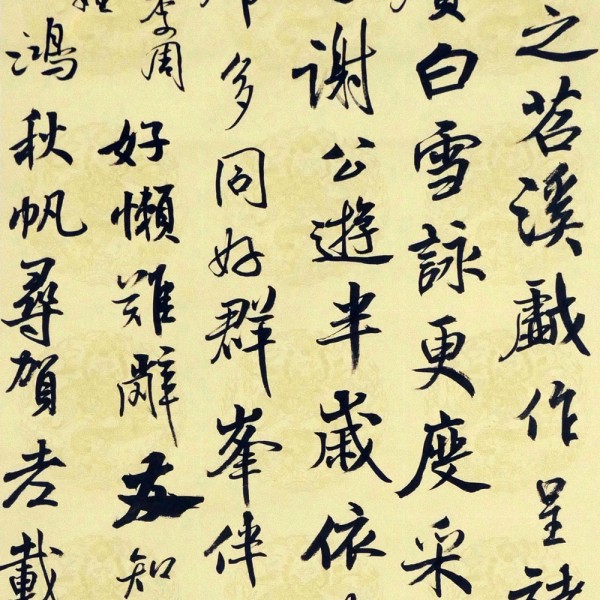 之苕溪戲作呈諸
白雪詠更度采
謝公遊半歲依
多同好群峯伴
李周
好懶難辭友知
鴻秋帆尋賀老載